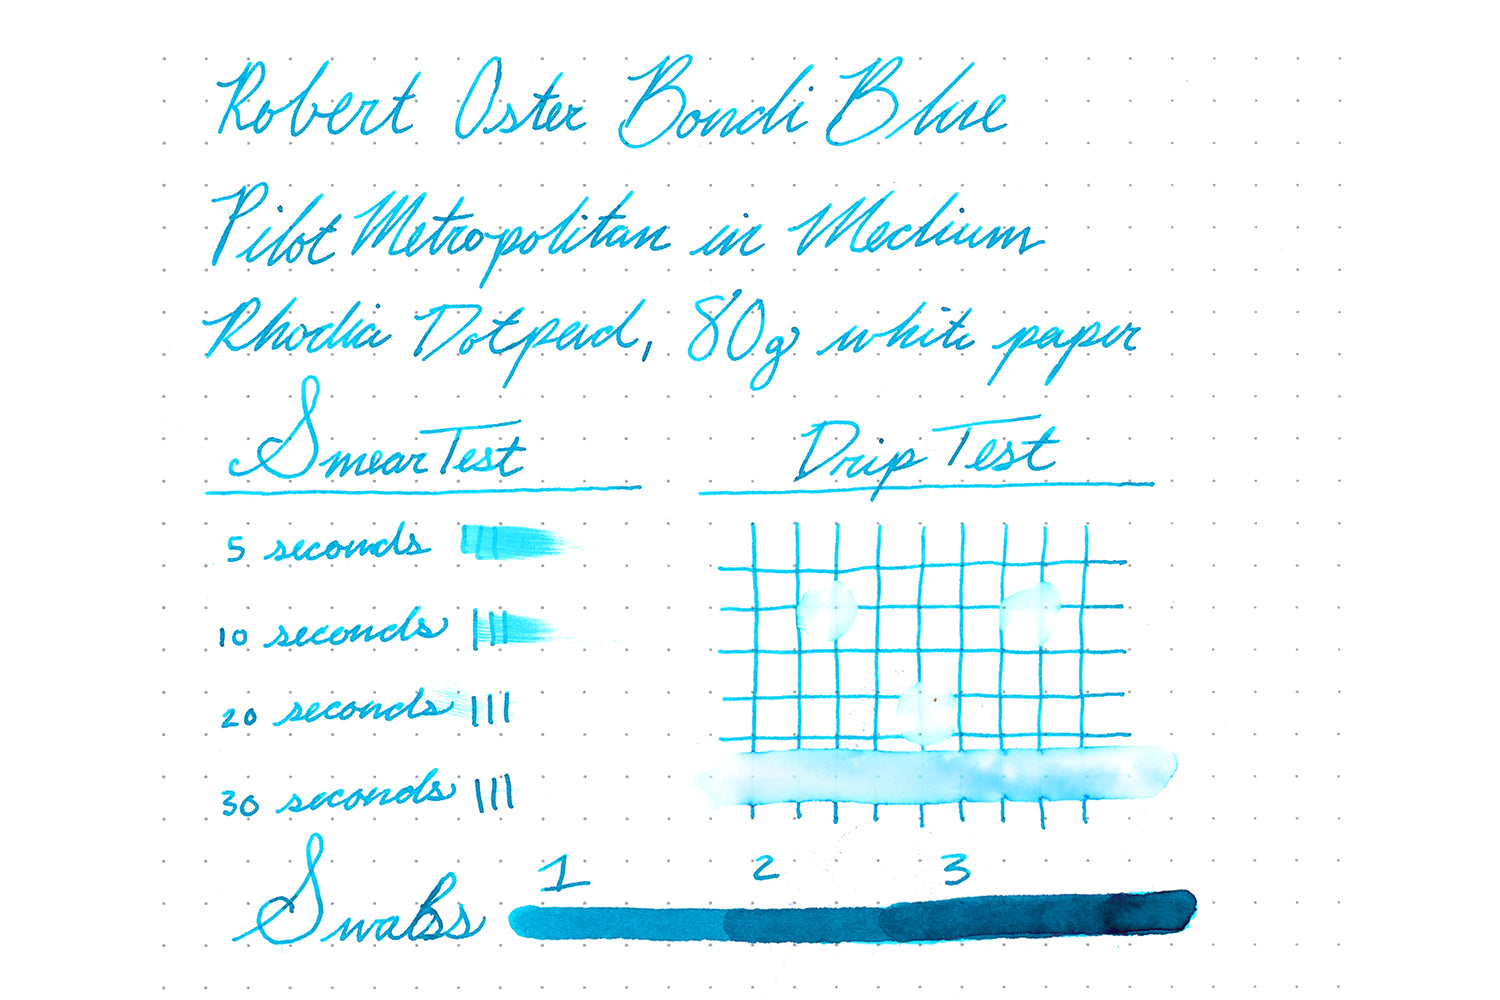 Robert Oster Bondi Blue
Pilot Metropolitan in Medium
Rhodia Dotpad, 80g white paper
Smear Test
Drip Test
5 seconds
10 seconds
20 seconds
30 seconds
1 2 3
Swabs